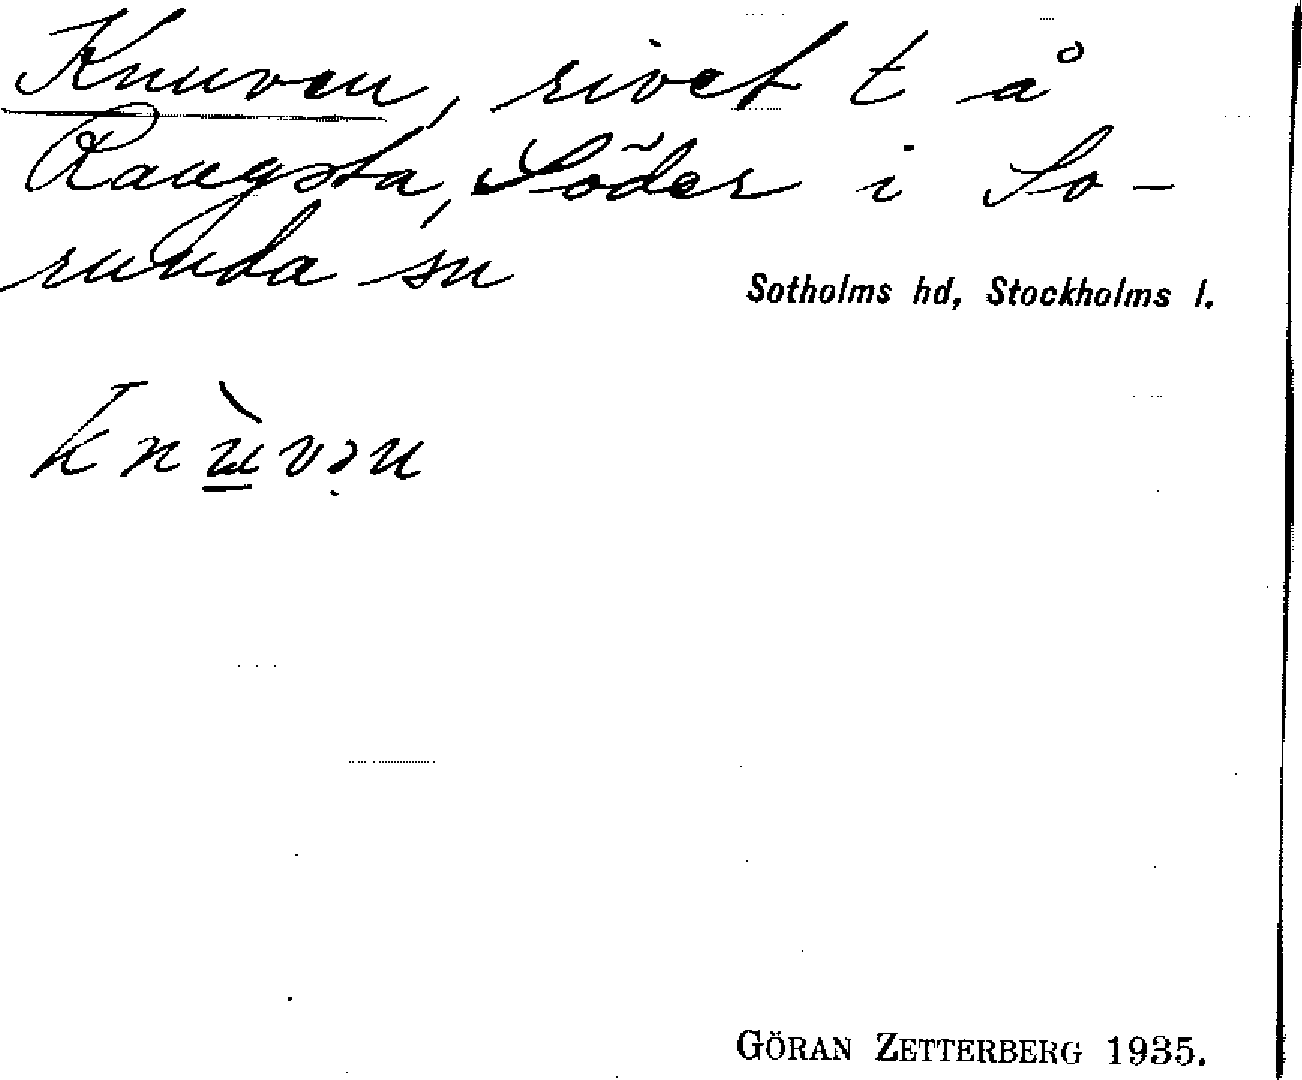 Knuven, rivet t å
Rangsta, Söder i So-
runda sn
Sotholms hd, Stockholms l.
knùvən
GÖRAN ZETTERBERG 1935.